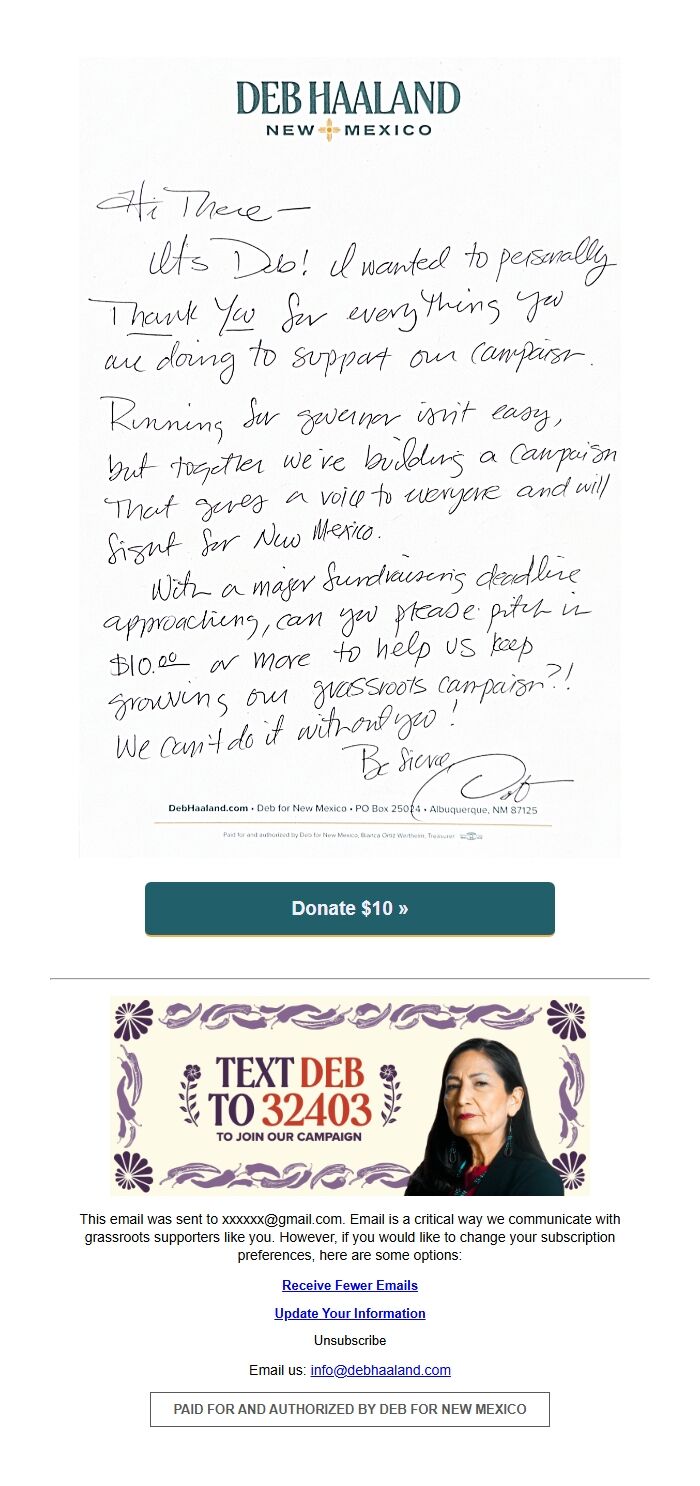 DEB HAALAND
NEW MEXICO
Hi There—
It's Deb! I wanted to personally
Thank You for everything you
are doing to support our campaign.
Running for governor isn't easy,
but together we've building a campaign
That gives a voice to everyone and will
fight for New Mexico.
With a major fundraising deadline
approaching, can you please pitch in
$10.00 or more to help us keep
growing our grassroots campaign?!
We can't do it without you!
Be Fierce,
Deb
DebHaaland.com • Deb for New Mexico • PO Box 25024 • Albuquerque, NM 87125
Paid for and authorized by Deb for New Mexico, Bianca Ortiz Wertheim, Treasurer
Donate $10 »
TEXT DEB
TO 32403
TO JOIN OUR CAMPAIGN
This email was sent to xxxxxx@gmail.com. Email is a critical way we communicate with
grassroots supporters like you. However, if you would like to change your subscription
preferences, here are some options:
Receive Fewer Emails
Update Your Information
Unsubscribe
Email us: info@debhaaland.com
PAID FOR AND AUTHORIZED BY DEB FOR NEW MEXICO